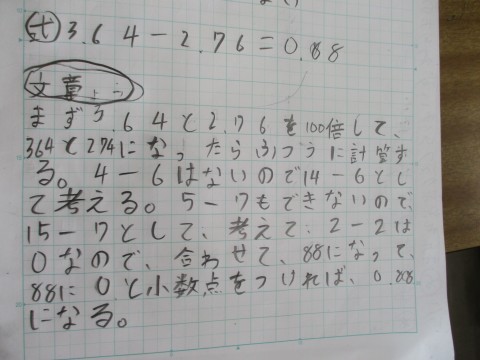 式 3.64-2.76=0.88
文章
まず3.64と2.76を100倍して、
364と274になったらふつうに計算す
る。4-6はないので14-6とし
て考える。5-7もできないので、
15-7として、考えて、2-2は
0なので、合わせて、88になって、
88に0と小数点をつければ、0.88
になる。